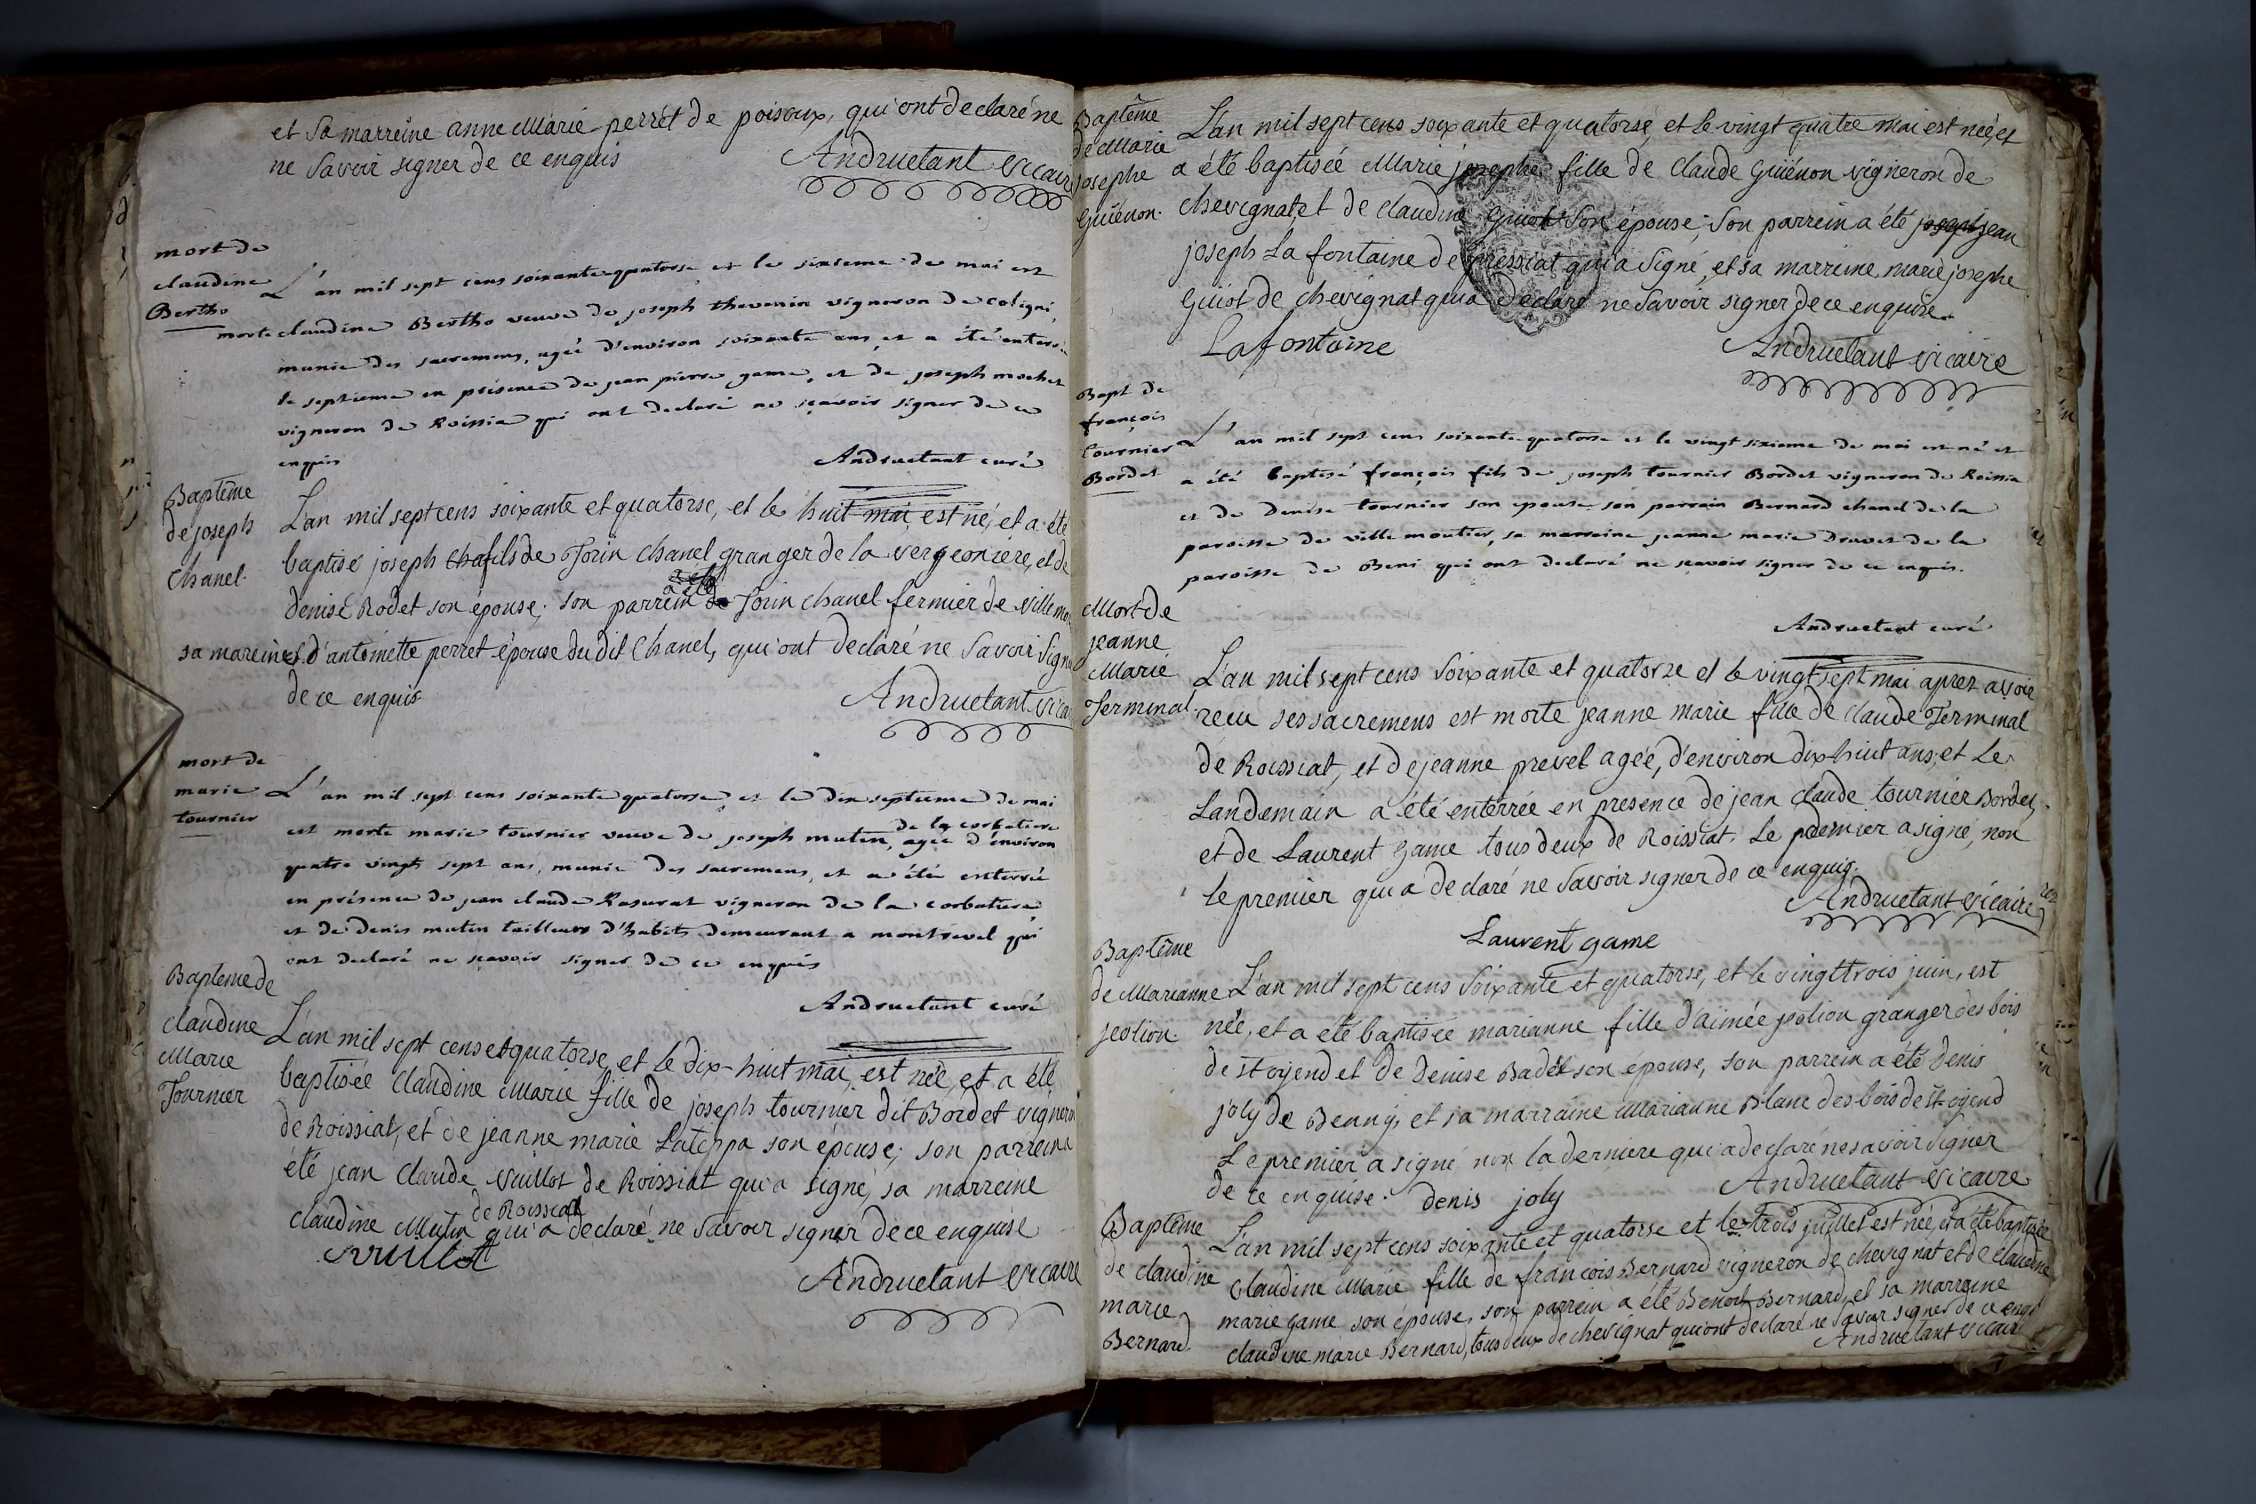 et sa marreine anne Marie perret de poisoux, qui ont declaré ne
ne savoir signer de ce enquis
Andruetant vicaire
mort de
claudine
Bertho
L'an mil sept cens soixante quatorse et le sixieme de mai est
morte claudine Bertho veuve de joseph thevenin vigneron de coligni,
munie des sacremens, agée d'environ soixante ans, et a été enterrée
le septieme en présence de jean pierre game, et de joseph mochet
vigneron de Roissia qui ont declaré ne sçavoir signer de ce
enquis
Andruetant curé
Baptême
de joseph
Chanel.
L'an mil sept cens soixante et quatorse, et le huit mai, est né, et a été
baptisé joseph cha fils de Jorin Chanel granger de la vergeoniere, et de
denise Rodet son épouse; son parrein a été Jorin chanel fermier de ville mo
sa mareine et d'antoinette perret épouse du dit Chanel, qui ont declaré ne savoir signer
de ce enquis
Andruetant vica
mort de
marie
tournier
L'an mil sept cens soixante quatorse, et le dix septieme de mai
est morte marie tournier veuve de joseph mutin, de la corbatiere agée d'environ
quatre vingt sept ans, munie des sacremens, et a été enterrée
en présence de jean claude Rasurat vigneron de la corbatiere
et de denis mutin tailleurs d'habits demeurant a montrevel qui
ont declaré ne sçavoir signer de ce enquis
Andruetant curé
Baptême de
claudine
Marie
Tournier
L'an mil sept cens et quatorse, et le dix-huit mai, est née, et a été
baptisée Claudine Marie fille de joseph tournier dit Bordet vigneron
de Roissiat, et de jeanne marie Lateppa son épouse; son parrein a
été jean Claude vuillot de Roissiat qui a signé, sa marreine
claudine Mutin de Roissiat qui a declaré ne savoir signer de ce enquise
vuillot
Andruetant vicaire
Baptême
de Marie
josephe
Guiénon.
L'an mil sept cens soixante et quatorse, et le vingt quatre mai est née, et
a été baptisée Marie josephe fille de Claude Guiénon vigneron de
chevignat et de claudine Guiot son épouse; son parrein a été joseph jean
joseph La fontaine de Pressiat qui a signé, et sa marreine marie josephe
Guiot de chevignat qui a declaré ne savoir signer de ce enquise.
Lafontaine
Andruetant vicaire
Bapt de
françois
tournier
Bordet
L'an mil sept cens soixante quatorse et le vingt sixieme de mai est né et
a été baptisé françois fils de joseph tournier Bordet vigneron de Roissia
et de denise tournier son epouse son parrain Bernard chanel de la
paroisse de ville moutier, sa marraine jeanne marie drevet de la
paroisse de Beni qui ont declaré ne sçavoir signer de ce enquis.
Andruetant curé
Mort de
jeanne
Marie
Terminal.
L'an mil sept cens soixante et quatorze et le vingt sept mai aprez avoir
recu ses sacremens est morte jeanne marie fille de Claude Terminal
de Roissiat, et de jeanne prevel agée, d'environ dix huit ans, et Le
Landemain a été enterrée en presence de jean claude tournier Bordet,
et de Laurent game tous deux de Roissiat. Le pdernier a signé, non
le premier qui a declaré ne savoir signer de ce enquis.
Andruetant vicaire
Laurent game
Baptême
de Marianne
jeolion.
L'an mil sept cens soixante et quatorse, et le vingt trois juin, est
née, et a été baptisée marianne fille d'aimée jeolion granger des bois
de st oyend et de denise Badet son épouse, son parrein a été denis
joly de Benny, et sa marraine Marianne Blanc des bois de st oyend
Le premier a signé non la derniere qui a declaré ne savoir signer
de ce enquise.
denis joly
Andruetant vicaire
Baptême
de claudine
marie
Bernard.
L'an mil sept cens soixante et quatorse et le trois juillet est née, et a été baptisée
Claudine Marie fille de françois Bernard vigneron de chevignat et de Claudine
marie game son épouse, son parrein a été Benoit Bernard, et sa marreine
claudine marie Bernard, tous deux de chevignat qui ont declaré ne savoir signer de ce enqu
Andruetant vicair